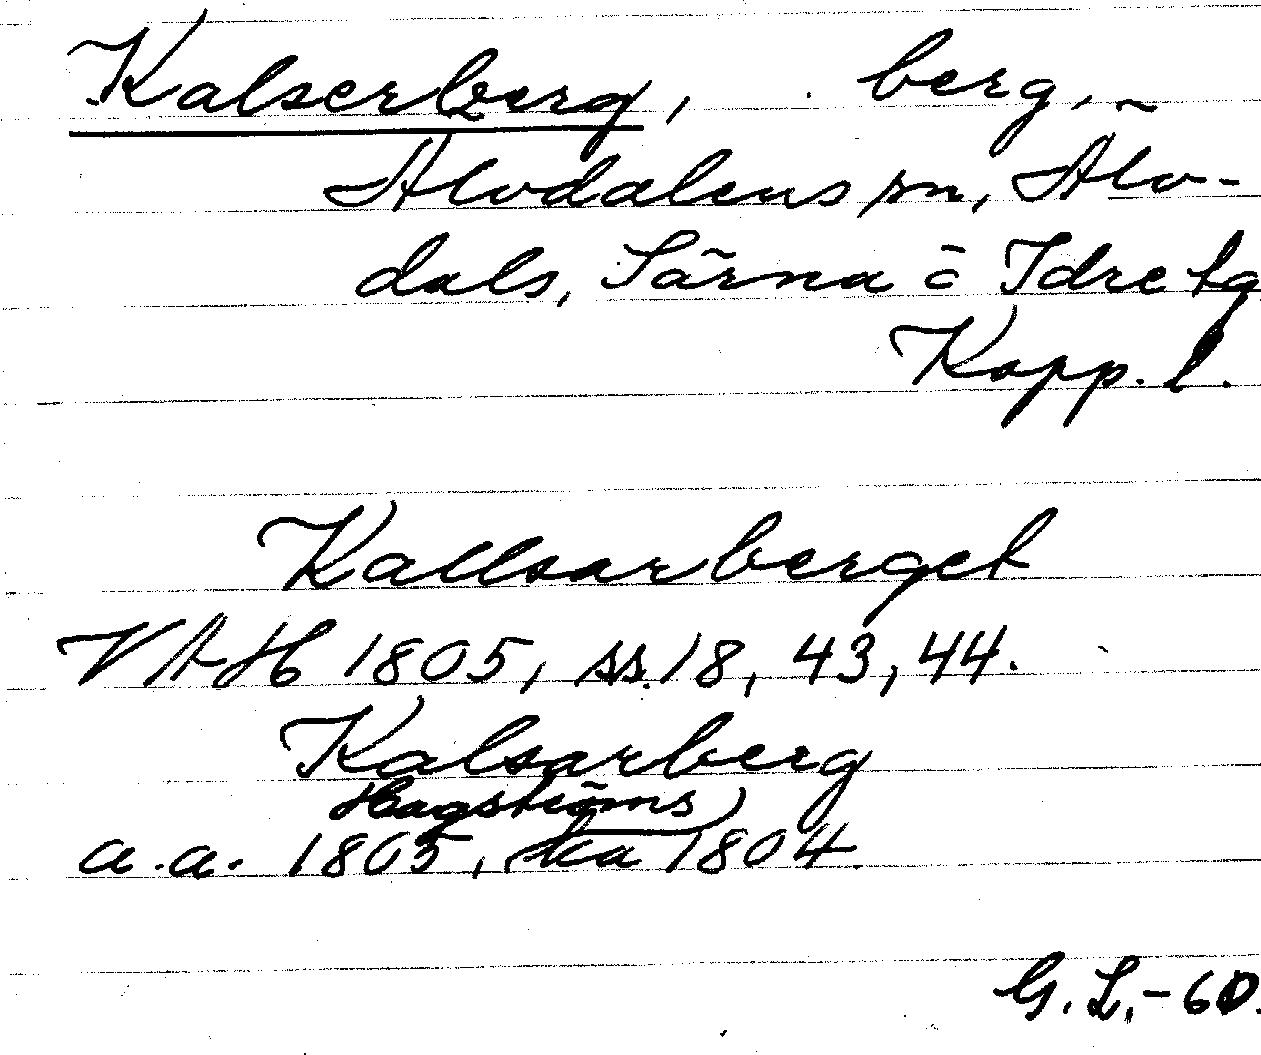 Kalserberg, berg,
Älvdalens sn, Älv-
dals, Särna o Idre tg
Kopp. l.
Kallsarberget
VAH 1805, ss. 18, 43, 44.
Kalsarberg
Hagströms
a.a. 1805, ka 1804
G. L. - 60.